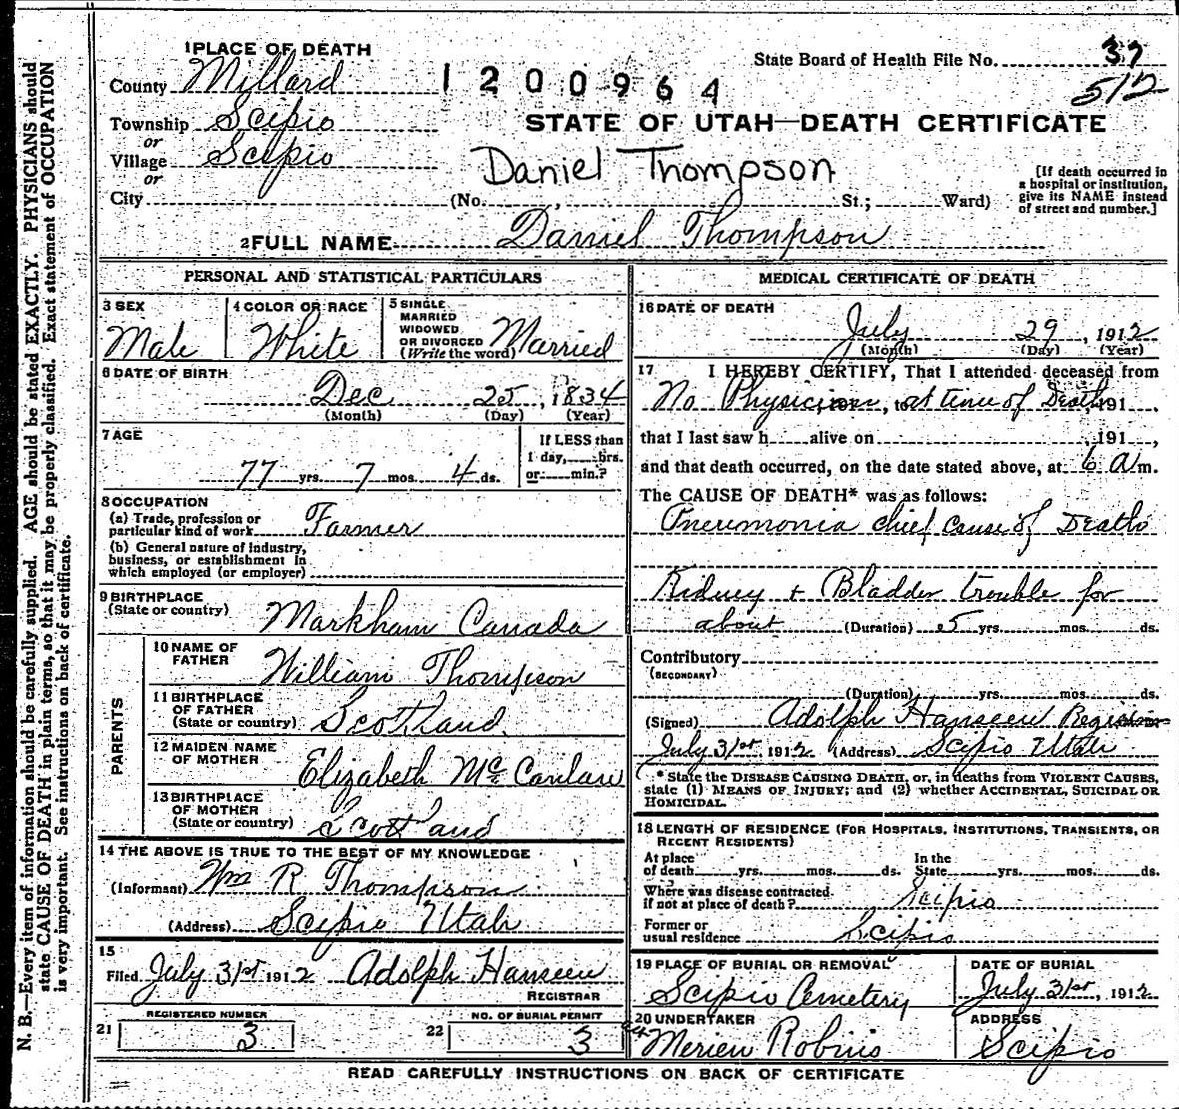 N. B.—Every item of information should be carefully supplied. AGE should be stated EXACTLY. PHYSICIANS should
state CAUSE OF DEATH in plain terms, so that it may be properly classified. Exact statement of OCCUPATION
is very important. See instructions on back of certificate.
1 PLACE OF DEATH
County Millard
1200964
State Board of Health File No. 37
512
Township Scipio
or
Village Scipio
or
City
STATE OF UTAH—DEATH CERTIFICATE
Daniel Thompson
(No. , St.; Ward)
[If death occurred in
a hospital or institution,
give its NAME instead
of street and number.]
2 FULL NAME Daniel Thompson
PERSONAL AND STATISTICAL PARTICULARS
3 SEX
Male
4 COLOR OR RACE
White
5 SINGLE
MARRIED
WIDOWED
OR DIVORCED
(Write the word) Married
6 DATE OF BIRTH
Dec 25, 1834
(Month) (Day) (Year)
7 AGE
77 yrs. 7 mos. 4 ds.
If LESS than
1 day, hrs.
or min.?
8 OCCUPATION
(a) Trade, profession or
particular kind of work Farmer
(b) General nature of industry,
business, or establishment in
which employed (or employer)
9 BIRTHPLACE
(State or country) Markham Canada
PARENTS
10 NAME OF
FATHER William Thompson
11 BIRTHPLACE
OF FATHER
(State or country) Scotland.
12 MAIDEN NAME
OF MOTHER Elizabeth
13 BIRTHPLACE
OF MOTHER
(State or country) Scotland
14 THE ABOVE IS TRUE TO THE BEST OF MY KNOWLEDGE
(Informant) Wm R Thompson
(Address) Scipio Utah
15
Filed July 31st 1912 Adolph Hanseen
REGISTRAR
21 REGISTERED NUMBER
3
22 NO. OF BURIAL PERMIT
3
MEDICAL CERTIFICATE OF DEATH
16 DATE OF DEATH
July 29, 1912
(Month) (Day) (Year)
17 I HEREBY CERTIFY, That I attended deceased from
No Physician, at time of Death, 191 ,
that I last saw h alive on , 191 ,
and that death occurred, on the date stated above, at 6 a m.
The CAUSE OF DEATH* was as follows:
Pneumonia chief cause of Death
Kidney + Bladder trouble for
about (Duration) 5 yrs. mos. ds.
Contributory
(SECONDARY)
(Duration) yrs. mos. ds.
(Signed) Adolph Hanseen Registrar
July 31st 1912 (Address) Scipio Utah
* State the DISEASE CAUSING DEATH, or, in deaths from VIOLENT CAUSES,
state (1) MEANS OF INJURY; and (2) whether ACCIDENTAL, SUICIDAL OR
HOMICIDAL.
18 LENGTH OF RESIDENCE (FOR HOSPITALS, INSTITUTIONS, TRANSIENTS, OR
RECENT RESIDENTS)
At place
of death yrs. mos. ds.
In the
State yrs. mos. ds.
Where was disease contracted
if not at place of death? Scipio
Former or
usual residence Scipio
19 PLACE OF BURIAL OR REMOVAL
Scipio Cemetery
DATE OF BURIAL
July 31st, 1912
20 UNDERTAKER
Merien Robins
ADDRESS
Scipio
READ CAREFULLY INSTRUCTIONS ON BACK OF CERTIFICATE